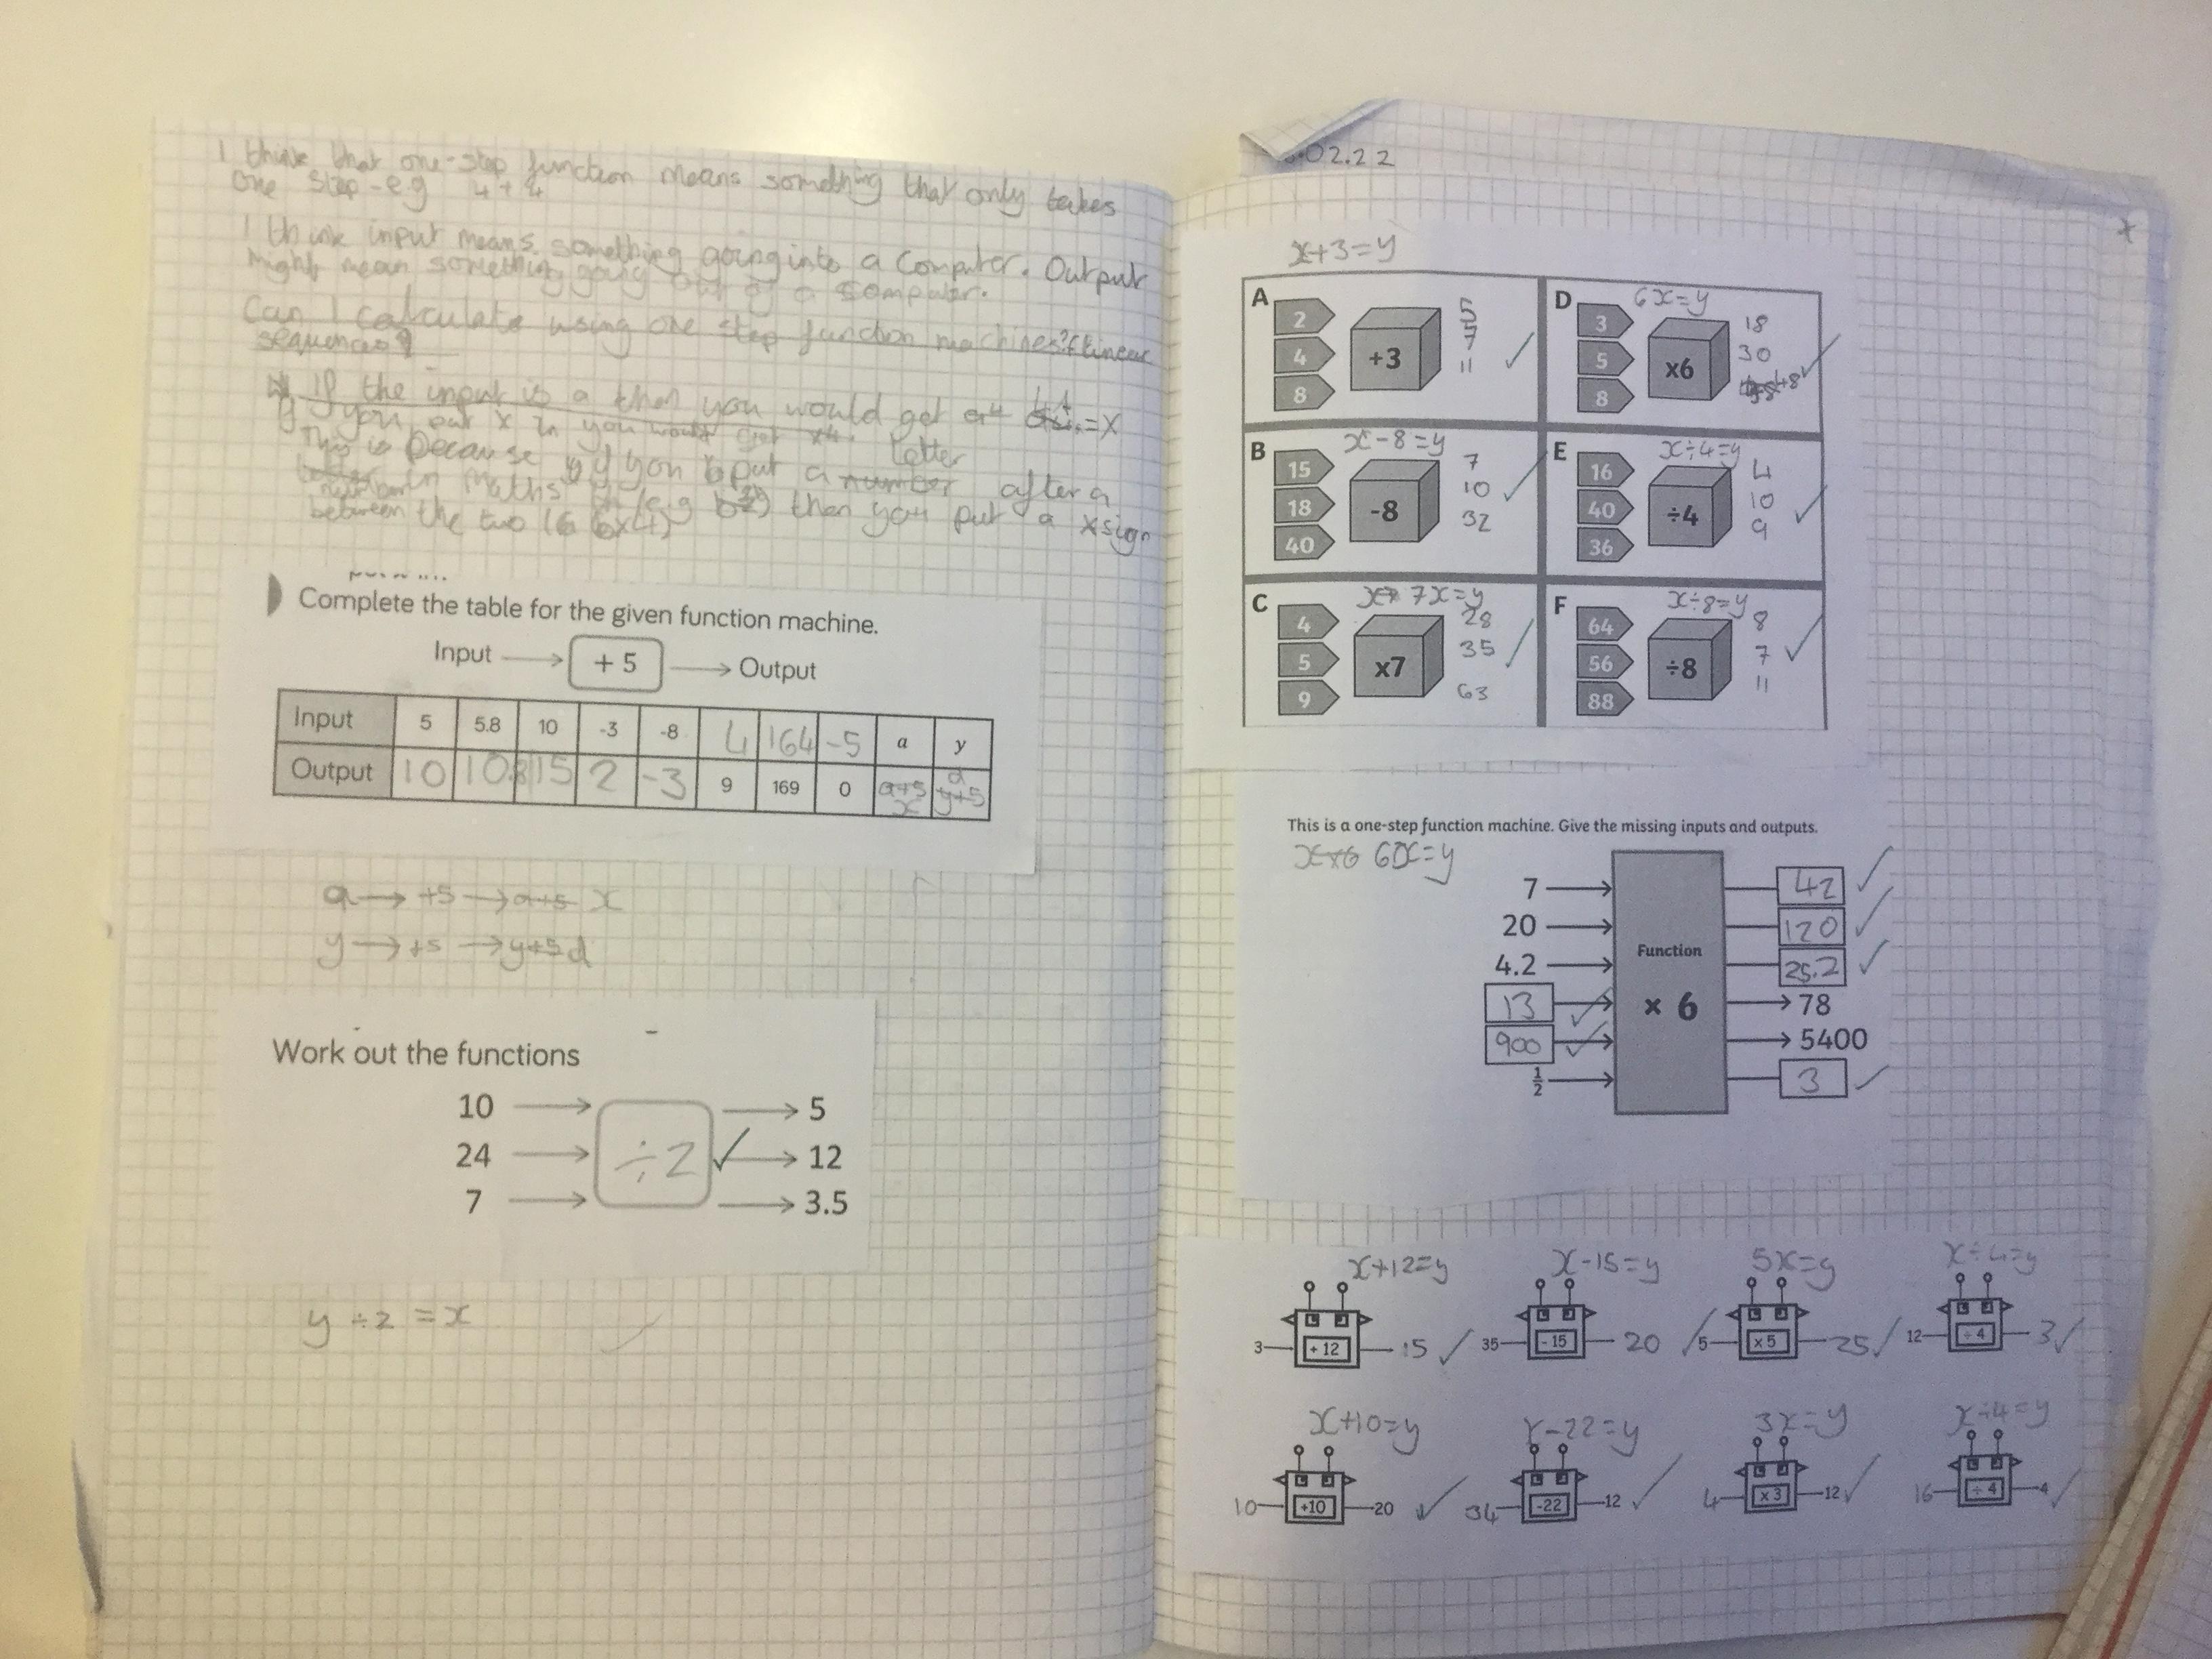 I think that one-step function means something that only takes
one step - e.g 4 + 4
I think input means something going into a computer. Output
might mean something going out of a computer.
Can I calculate using one step function machines? (linear
sequences?
If the input is a then you would get a4 = x
If you put x in you would get x4.
This is because if you put a number letter after a
in maths number (e.g b3) then you put a x sign
between the two (6 6x4)
Complete the table for the given function machine.
Input → + 5 → Output
Input 5 5.8 10 -3 -8 4 164 -5 a y
Output 10 10.8 15 2 -3 9 169 0 a+5 x y+5 d
a → +5 → a+5 x
y → +5 → y+5 d
Work out the functions
10 → → 5
24 → ÷2 ✓ → 12
7 → → 3.5
y ÷ 2 = x
02.22
x+3=y
A 2 4 8 +3 5 7 11 ✓
D 6x=y 3 5 8 x6 18 30 48 ✓
B x-8=y 15 18 40 -8 7 10 32 ✓
E x÷4=y 16 40 36 ÷4 4 10 9 ✓
C 7x=y 4 5 9 x7 28 35 63 ✓
F x÷8=y 64 56 88 ÷8 8 7 11 ✓
This is a one-step function machine. Give the missing inputs and outputs.
x×6 6x=y
7 → 42 ✓
20 → 120 ✓
4.2 → Function 25.2 ✓
13 ✓ → × 6 → 78
900 ✓ → → 5400
1/2 → 3 ✓
x+12=y x-15=y 5x=y x÷4=y
3 + 12 15 ✓ 35 - 15 20 ✓ 5 x 5 25 ✓ 12 ÷ 4 3 ✓
x+10=y x-22=y 3x=y x÷4=y
10 +10 20 ✓ 34 -22 12 ✓ 4 x 3 12 ✓ 16 ÷ 4 4 ✓